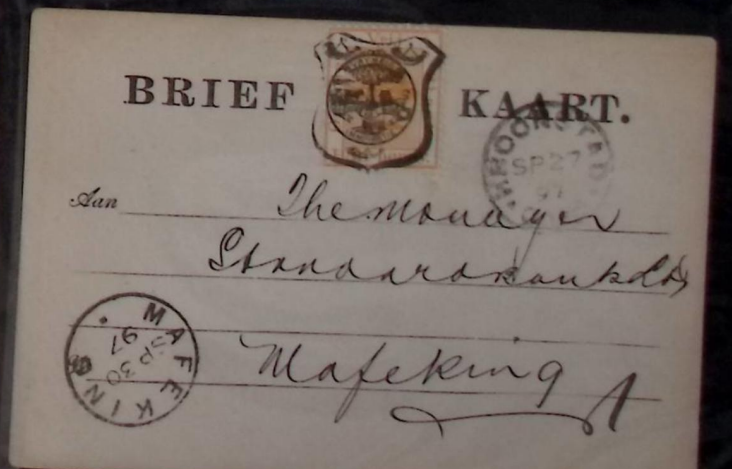 BRIEF KAART.
KROONSTAD
SP 27
97
Aan The Manager
Standard Bank Ltd
Mafeking
MAFEKING
SP 30
97